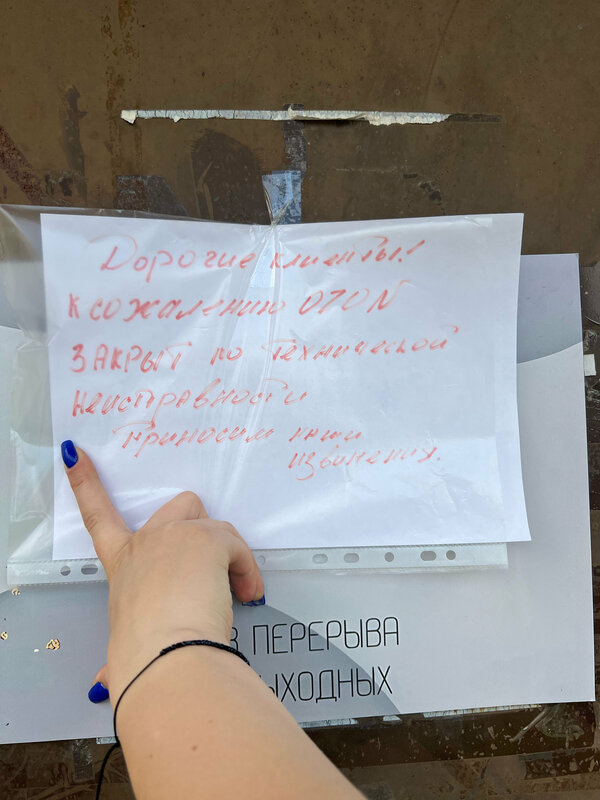 Дорогие клиенты!
К сожалению OZON
ЗАКРЫТ по технической
Неисправности
Приносим наши
извинения.
З ПЕРЕРЫВА
ЫХОДНЫХ